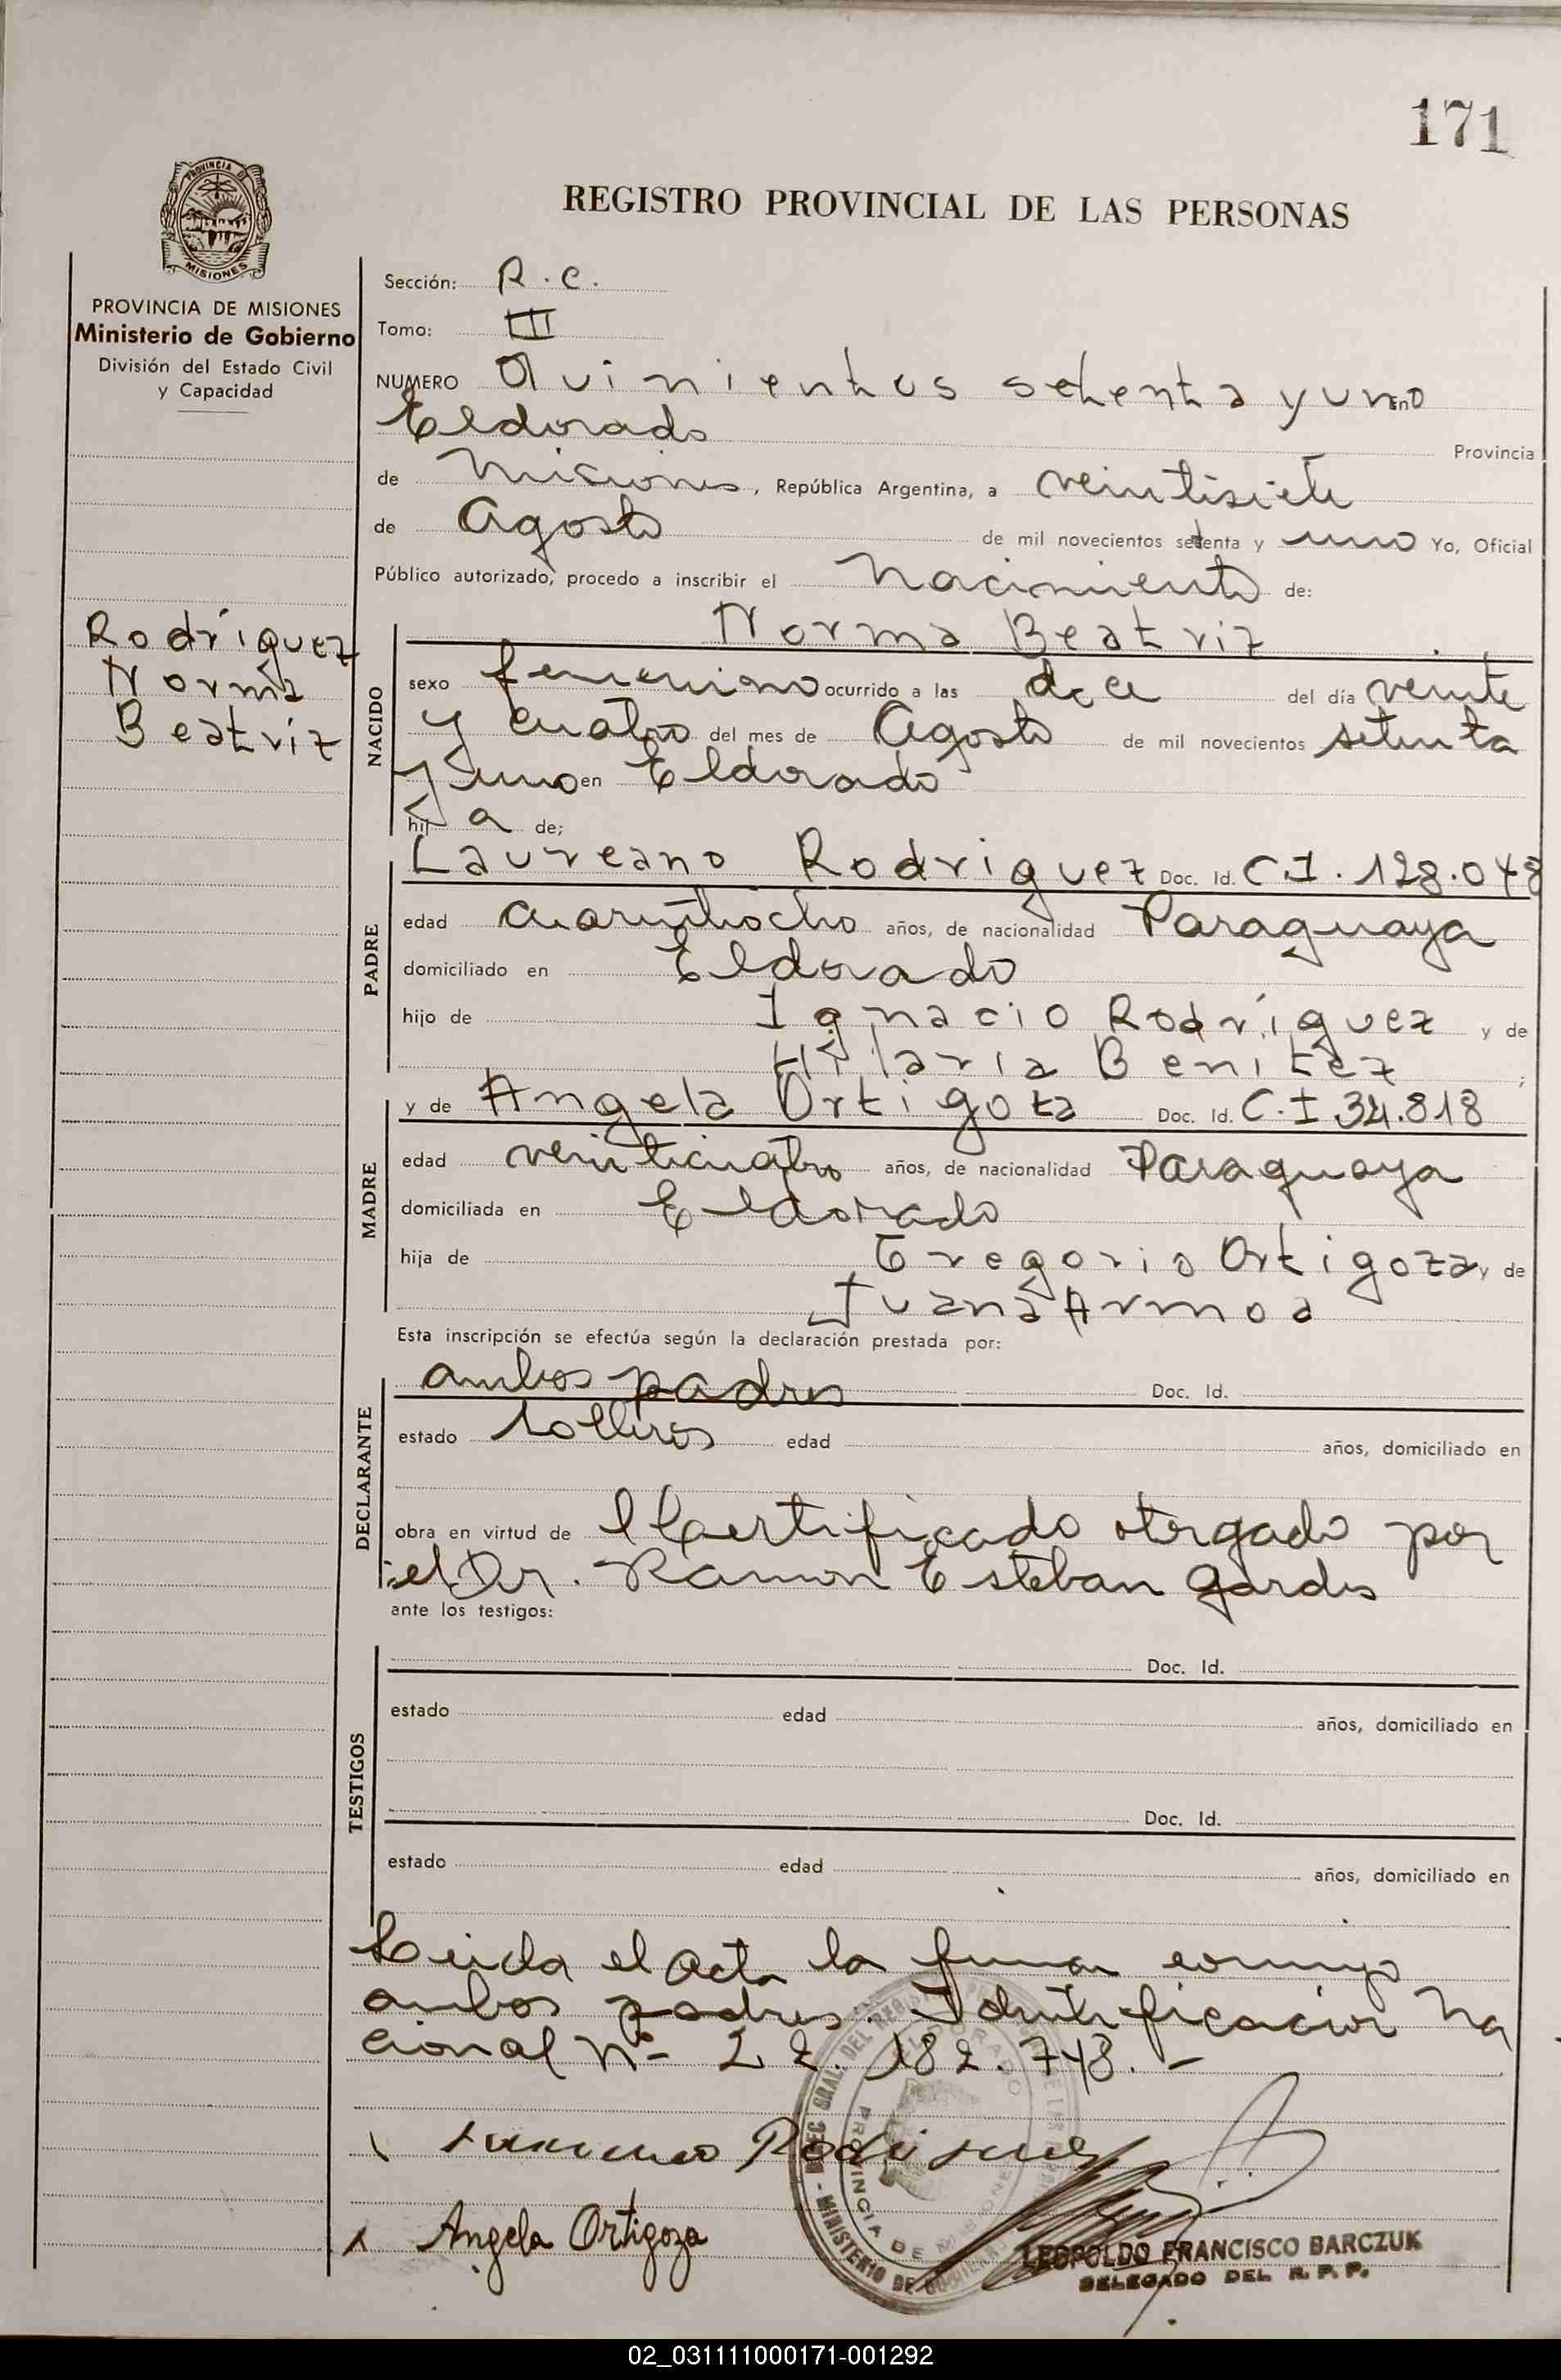 171
REGISTRO PROVINCIAL DE LAS PERSONAS
PROVINCIA DE MISIONES
Ministerio de Gobierno
División del Estado Civil
y Capacidad
Sección: R.C.
Tomo: III
NUMERO Quinientos setenta y uno En
Eldorado Provincia
de Misiones, República Argentina, a veintisiete
de Agosto de mil novecientos setenta y uno Yo, Oficial
Público autorizado, procedo a inscribir el Nacimiento de:
Rodríguez
Norma
Beatriz
NACIDO
Norma Beatriz
sexo femenino ocurrido a las doce del día veinte
y cuatro del mes de Agosto de mil novecientos setenta
y uno en Eldorado
hij a de;
PADRE
Laureano Rodriguez Doc. Id. C.I. 128.048
edad cuarentiocho años, de nacionalidad Paraguaya
domiciliado en Eldorado
hijo de Ignacio Rodríguez y de
Hilaria Benitez ;
MADRE
y de Angela Ortigoza Doc. Id. C.I. 34.818
edad veinticuatro años, de nacionalidad Paraguaya
domiciliada en Eldorado
hija de Gregorio Ortigoza y de
Juana Armoa
Esta inscripción se efectúa según la declaración prestada por:
DECLARANTE
ambos padres Doc. Id.
estado solteros edad años, domiciliado en
obra en virtud de Certificado otorgado por
el Dr. Ramon Esteban Gardes
ante los testigos:
TESTIGOS
Doc. Id.
estado edad años, domiciliado en
Doc. Id.
estado edad años, domiciliado en
Leida el acta la firman conmigo
ambos padres. Identificacion Na
cional Nº 22.182.748.-
Rodriguez
Angela Ortigoza
LEOPOLDO FRANCISCO BARCZUK
DELEGADO DEL R. P. P.
PROVINCIA DE MISIONES
02_031111000171-001292